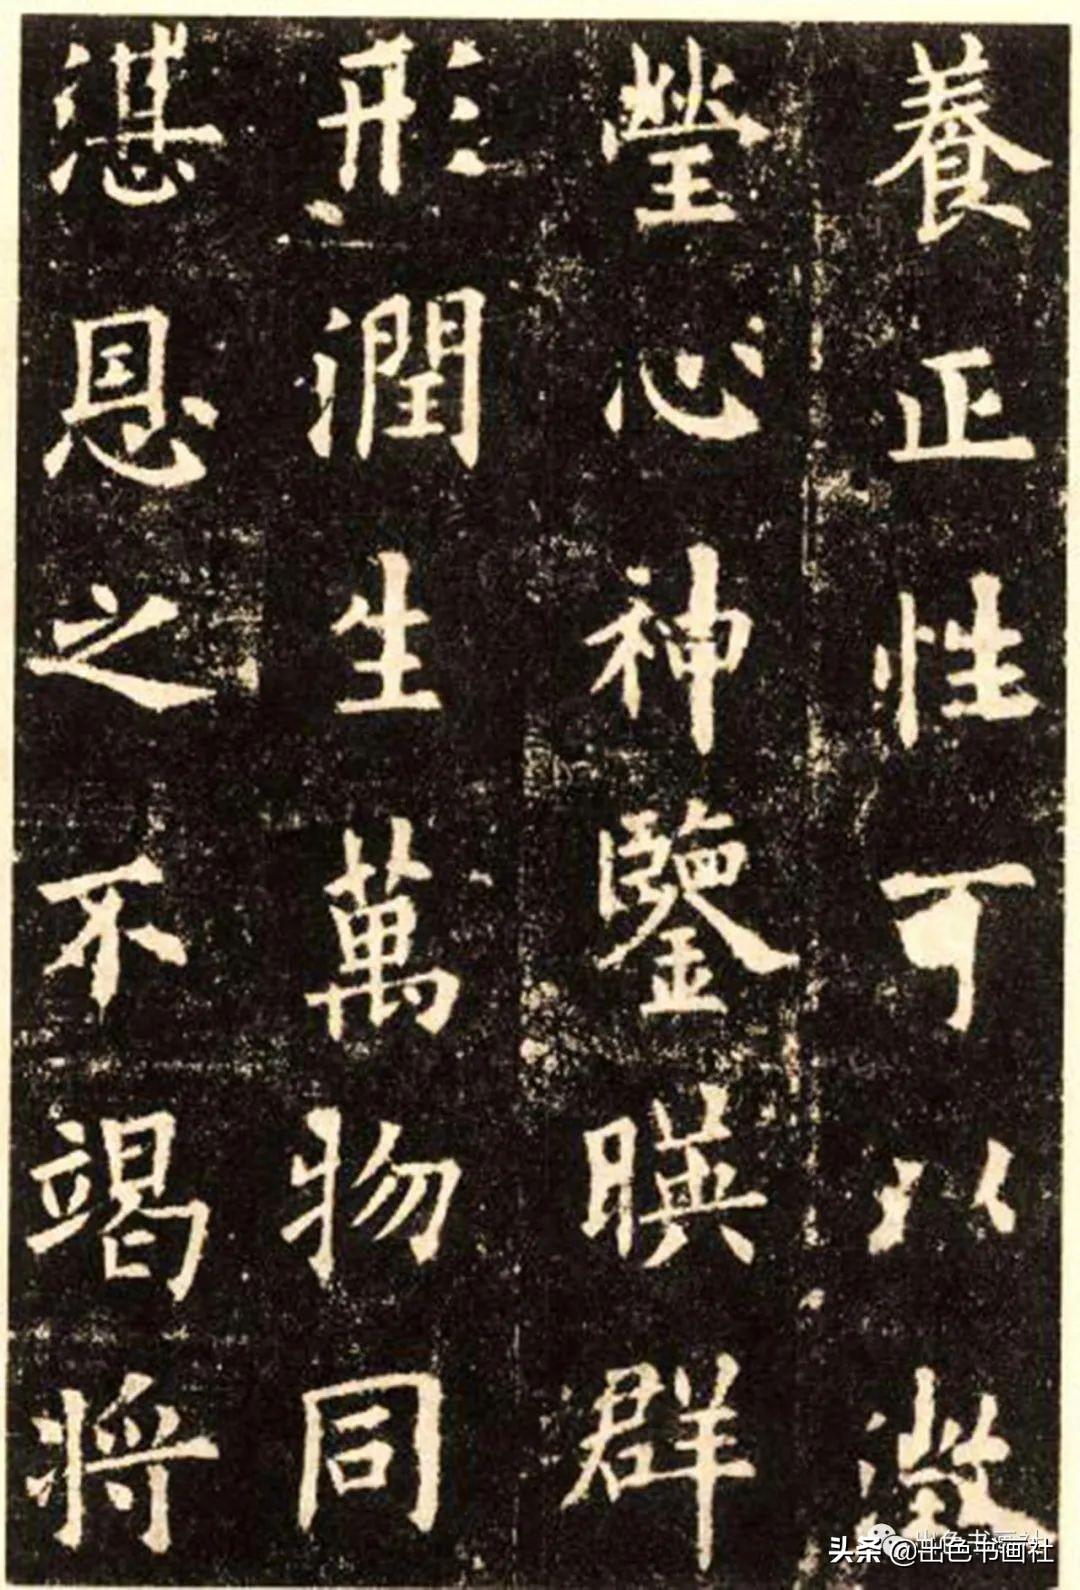 養正性可以澂
瑩心神鑒暎群
形潤生萬物同
湛恩之不竭将
头条@出色书画社
出色书画社